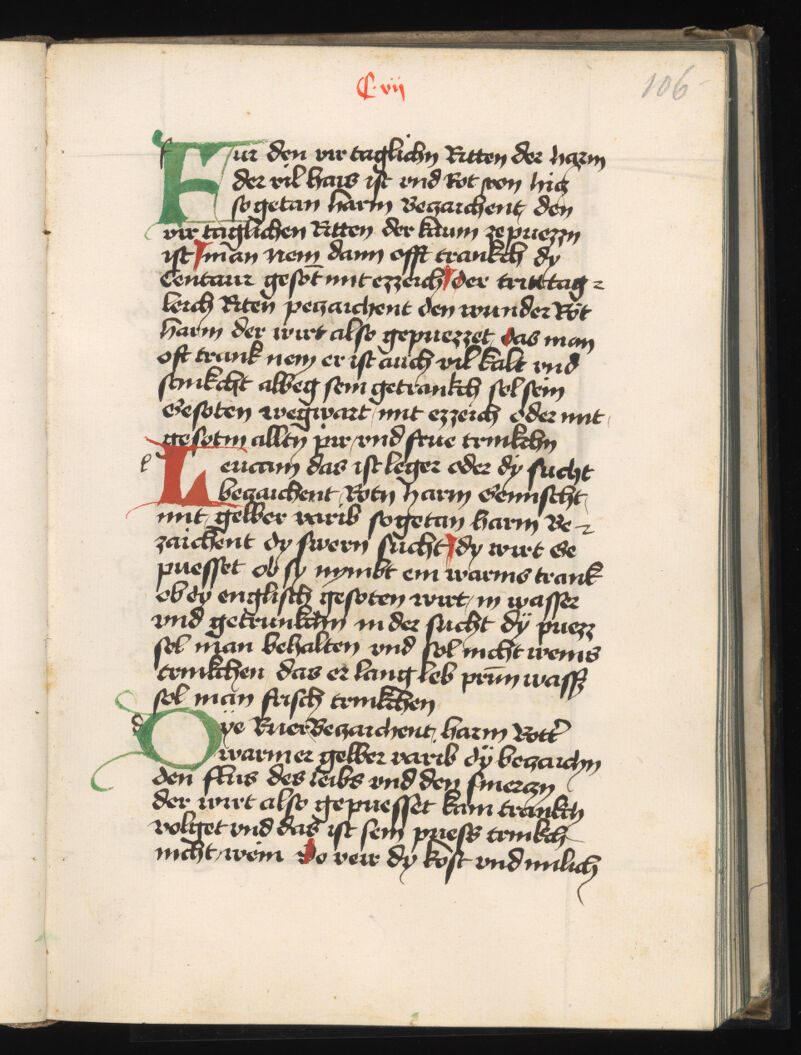 C vij
106
Fur den vir taglichn Ritten der harm
der vil hais ist vnd Rot von hicz
so getan harm Beczaichent den
vir taglichen Ritten der kaum ze puezzn
ist man nem dann offt trankch dy
Centaur gesot mit ezzeich der tritttag
leich Riten peczaichent den wunder Rot
harm der wirt also gepuezzet das man
oft trank nem er ist auch vil kalt vnd
smkcht albeg sein getrankch sol sein
Gesoten wegwart mit ezzeich oder mit
gesotm alltn pir vnd frue trinkchn
Leucam das ist leger oder dy sucht
beczaichent Rotn harm Gemischt
mit gelber varib so getan harm Be
zaichent dy swern sucht dy wirt Ge
puesset ob sy nymbt ein warms trank
ob dy englisch gesoten wirt in wasser
vnd getrunkchn in der sucht dÿ puezz
sol man behalten vnd sol nicht weins
trinkchen das er lang leb prun wass
sol man frisch trinkchen
Dye Ruer Beczaichent harm Rott
warmer gelber varib dÿ beczaichn
den flus des leibs vnd den smerczn
der wirt also gepuesset kain trankch
volget vnd das ist sein puess trinkch
nicht wein Do verr dy kost vnd milich